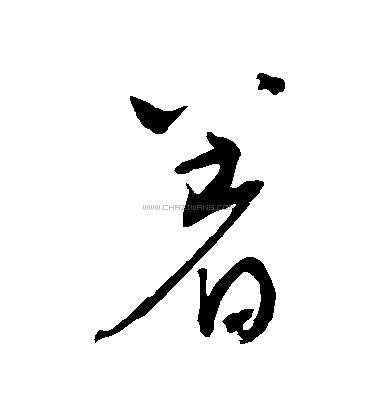 著
WWW.CHAZIWANG.COM